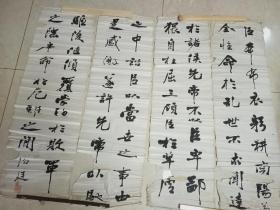 臣本布衣躬耕南陽苟
全性命於乱世不求聞達
於諸侯先帝不以臣卑鄙
猥自枉屈三顧臣於草廬
之中諮臣以當世之事由
是感激遂許先帝以驅
馳後值傾覆受任於敗軍
之際奉命於危難之間